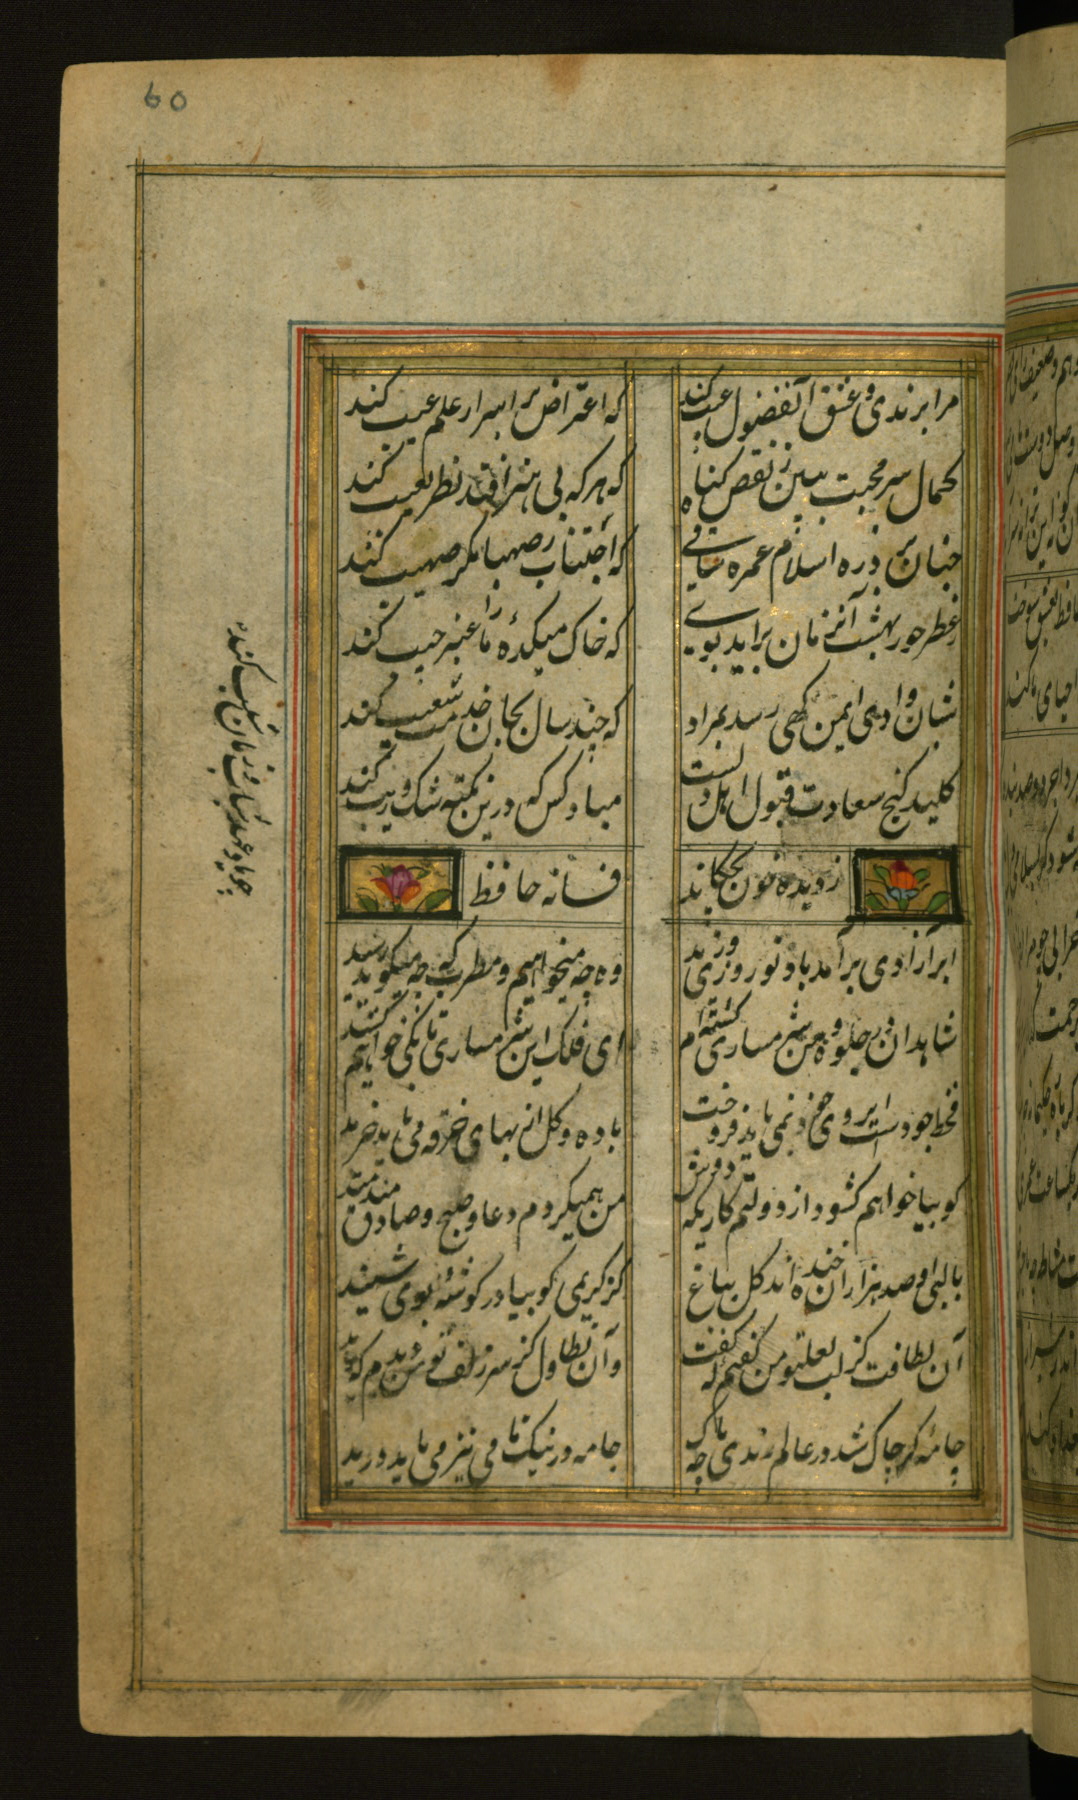 60
مرا برندی و عشق آنفضول عیب کند
که اعتراض بر اسرار علم عیب کند
کمال سر محبت ببین نه نقص کناه
که هر که بی هنر افتد نظر بعیب کند
چنان برد ره اسلام عمزه ساقی
که اجتناب ز صهبا مکر صهیب کند
ز عطر حور بهشت آنزمان براید بوی
که خاک میکدهٔ ما را عبیر جیب کند
شبان وادی ایمن کهی رسد بمراد
که چند سال بجان خدمت شعیب کند
کلید کنج سعادت قبول اهل دلست
مباد کس که درین نکته شک و ریب کند
ز دیده خون بچکاند
فسانه حافظ
چو یاد عهد شباب و زمان شیب کند
ابر آزاری برآمد باد نوروزی وزید
وجه می میخواهیم و مطرب که میکوید رسید
شاهدان در جلوه و من شرمسار کیسه‌ام
ای فلک این شرمساری تا بکی خواهم کشید
قحط جودست ابروی خود نمی باید فروخت
باده و کل از بهای خرقه می باید خرید
کوییا خواهم کشود از دولتم کاری که دوش
من همیکردم دعا و صبح صادق میدمید
با لبی و صد هزاران خنده اند کل بباغ
کز کریمی کوییا در کوشهٔ بوی شنید
آن لطافت کز لب لعل تو من کفتم که کفت
وان تطاول کز سر زلف تو من دیدم که دید
جامهٔ کر چاک شد در عالم رندی چه باک
جامه در نیک نامی نیز می باید درید